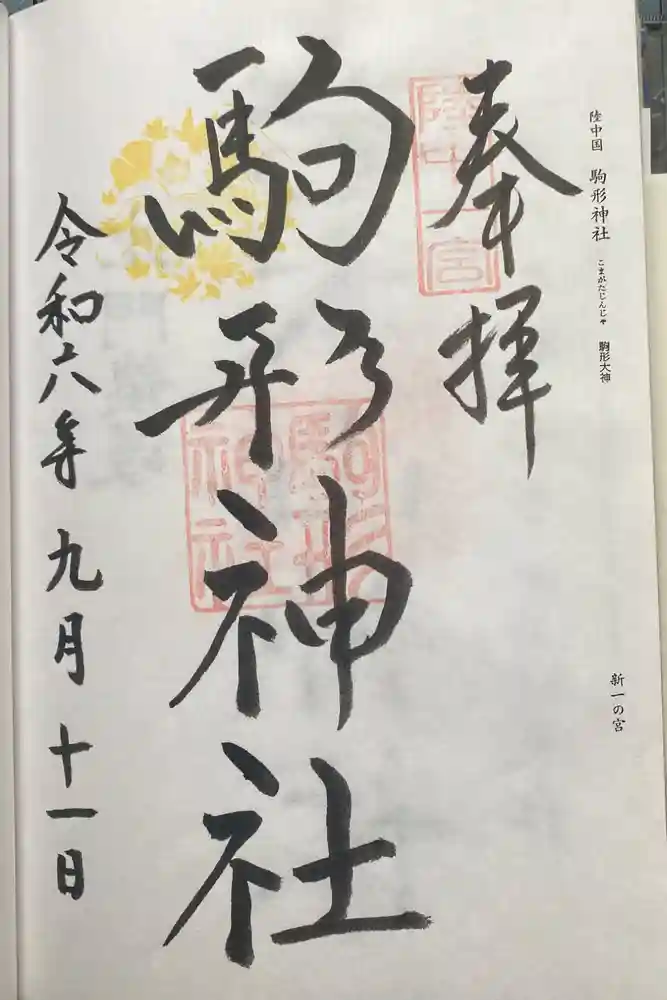 陸中国 駒形神社 こまがたじんじゃ 駒形大神
新一の宮
奉拝
陸中一宮
駒形神社
駒形
神社
令和六年九月十一日